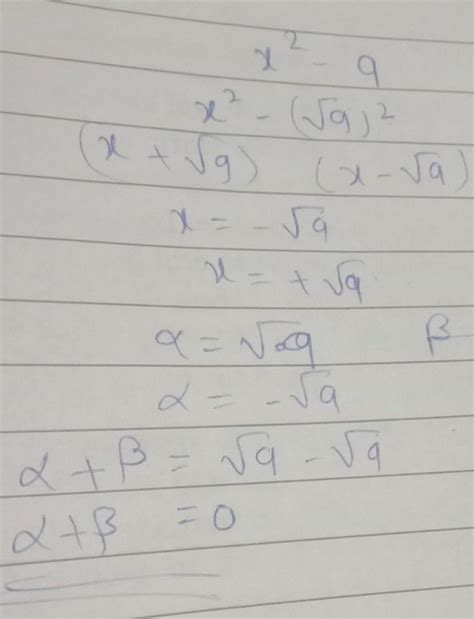 x² - 9
x² - (√9)²
(x + √9) (x - √9)
x = - √9
x = + √9
α = √9 β
α = - √9
α + β = √9 - √9
α + β = 0